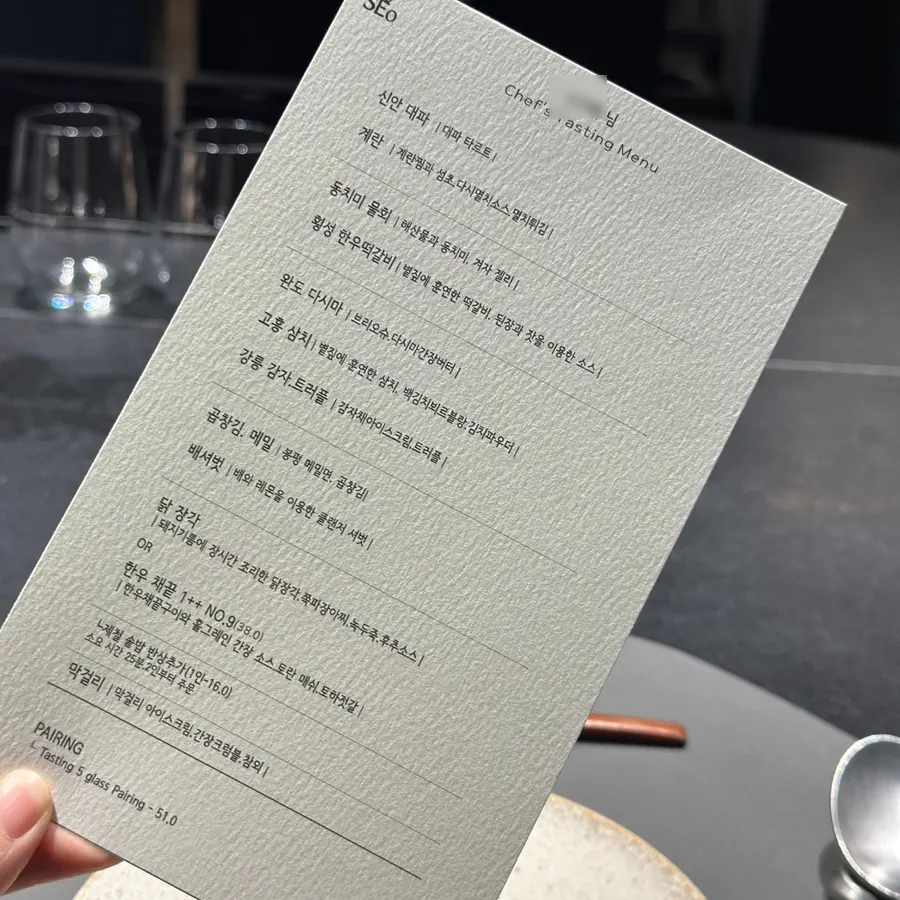 SEo
님
Chef's Tasting Menu
신안 대파 | 대파 타르트 |
계란 | 계란찜과 섬초.다시멸치소스 멸치튀김 |
동치미 물회 | 해산물과 동치미, 겨자 젤리 |
횡성 한우떡갈비 | 볕짚에 훈연한 떡갈비, 된장과 잣을 이용한 소스 |
완도 다시마 | 브리오슈.다시마간장버터 |
고흥 삼치 | 볕짚에 훈연한 삼치, 백김치뵈르블랑.김치파우더 |
강릉 감자.트러플 | 감자채아이스크림.트러플 |
곱창김. 메밀 | 봉평 메밀면, 곱창김|
배셔벗 | 배와 레몬을 이용한 클랜저 셔벗 |
닭 장각
| 돼지기름에 장시간 조리한 닭장각.쪽파장아찌.녹두죽.후추소스 |
OR
한우 채끝 1++ NO.9(38.0)
| 한우채끝구이와 홀그레인 간장 소스.토란 매쉬.토하젓갈 |
ㄴ제철 솥밥 반상추가(1인-16.0)
소요 시간 25분.2인부터 주문
막걸리 | 막걸리 아이스크림.간장크럼블.참외 |
PAIRING
ㄴ Tasting 5 glass Pairing - 51.0